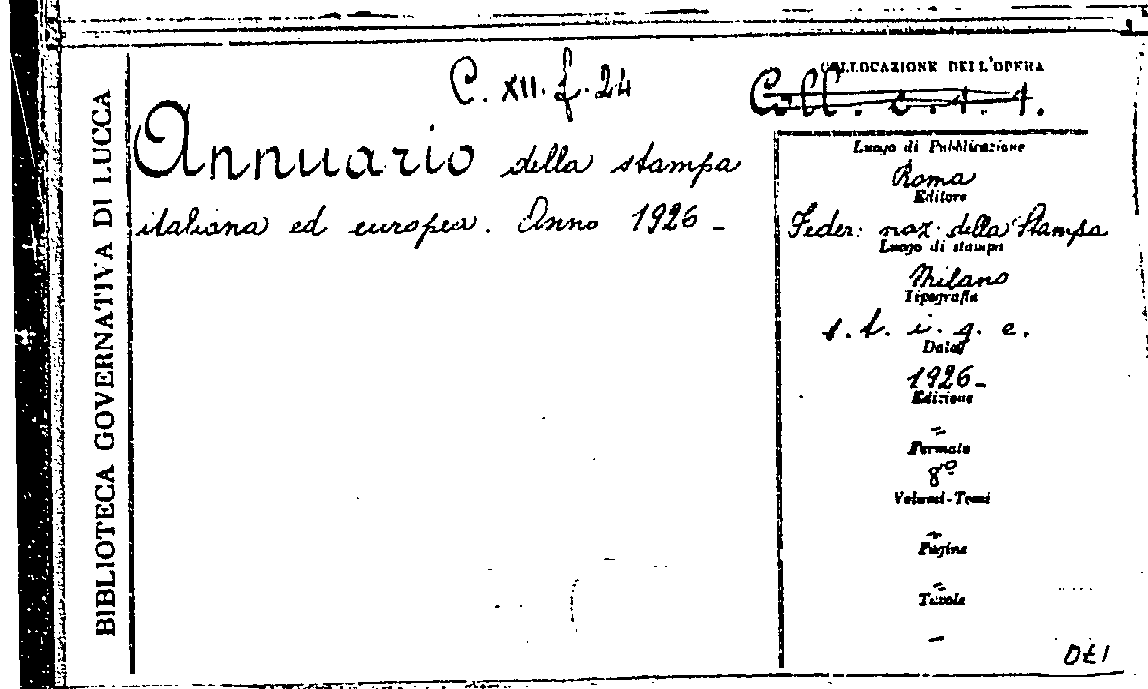 BIBLIOTECA GOVERNATIVA DI LUCCA
C. XII. f. 24
Annuario della stampa
italiana ed europea. Anno 1926 -
COLLOCAZIONE DELL'OPERA
Coll. c. 1. 1.
Luogo di Pubblicazione
Roma
Editore
Feder: naz. della Stampa
Luogo di stampa
Milano
Tipografia
s. t. i. g. e.
Data
1926 -
Edizione
=
Formato
8º
Volumi-Tomi
=
Pagine
=
Tavole
-
170